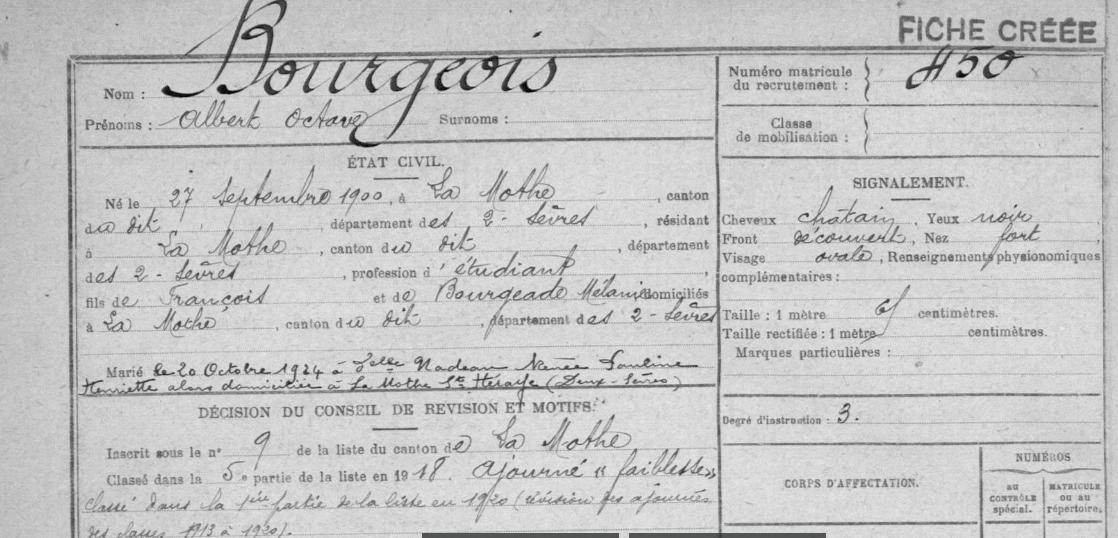 FICHE CRÉÉE
Nom : Bourgeois
Prénoms : Albert Octave Surnoms :
Numéro matricule du recrutement : 450
Classe de mobilisation :
ÉTAT CIVIL.
Né le 27 Septembre 1900, à La Mothe, canton
du dit, département des 2-Sèvres, résidant
à La Mothe, canton du dit, département
des 2-Sèvres, profession d'étudiant,
fils de François et de Bourgeade Mélanie domiciliés
à La Mothe, canton du dit, département des 2-Sèvres
Marié le 20 Octobre 1924 à Delle Nadeau Renée Pauline
Henriette alors domiciliée à La Mothe St Héraye (Deux-Sèvres)
DÉCISION DU CONSEIL DE REVISION ET MOTIFS.
Inscrit sous le n° 9 de la liste du canton de La Mothe
Classé dans la 5e partie de la liste en 1918. Ajourné « faiblesse »
Classé dans la 1ère partie de la liste en 1920 (révision des ajournés
des classes 1913 à 1920).
SIGNALEMENT.
Cheveux chatain, Yeux noir
Front découvert, Nez fort,
Visage ovale, Renseignements physionomiques
complémentaires :
Taille : 1 mètre 61 centimètres.
Taille rectifiée : 1 mètre centimètres.
Marques particulières :
Degré d'instruction : 3.
CORPS D'AFFECTATION.
NUMÉROS
AU CONTRÔLE spécial.
MATRICULE ou au répertoire.